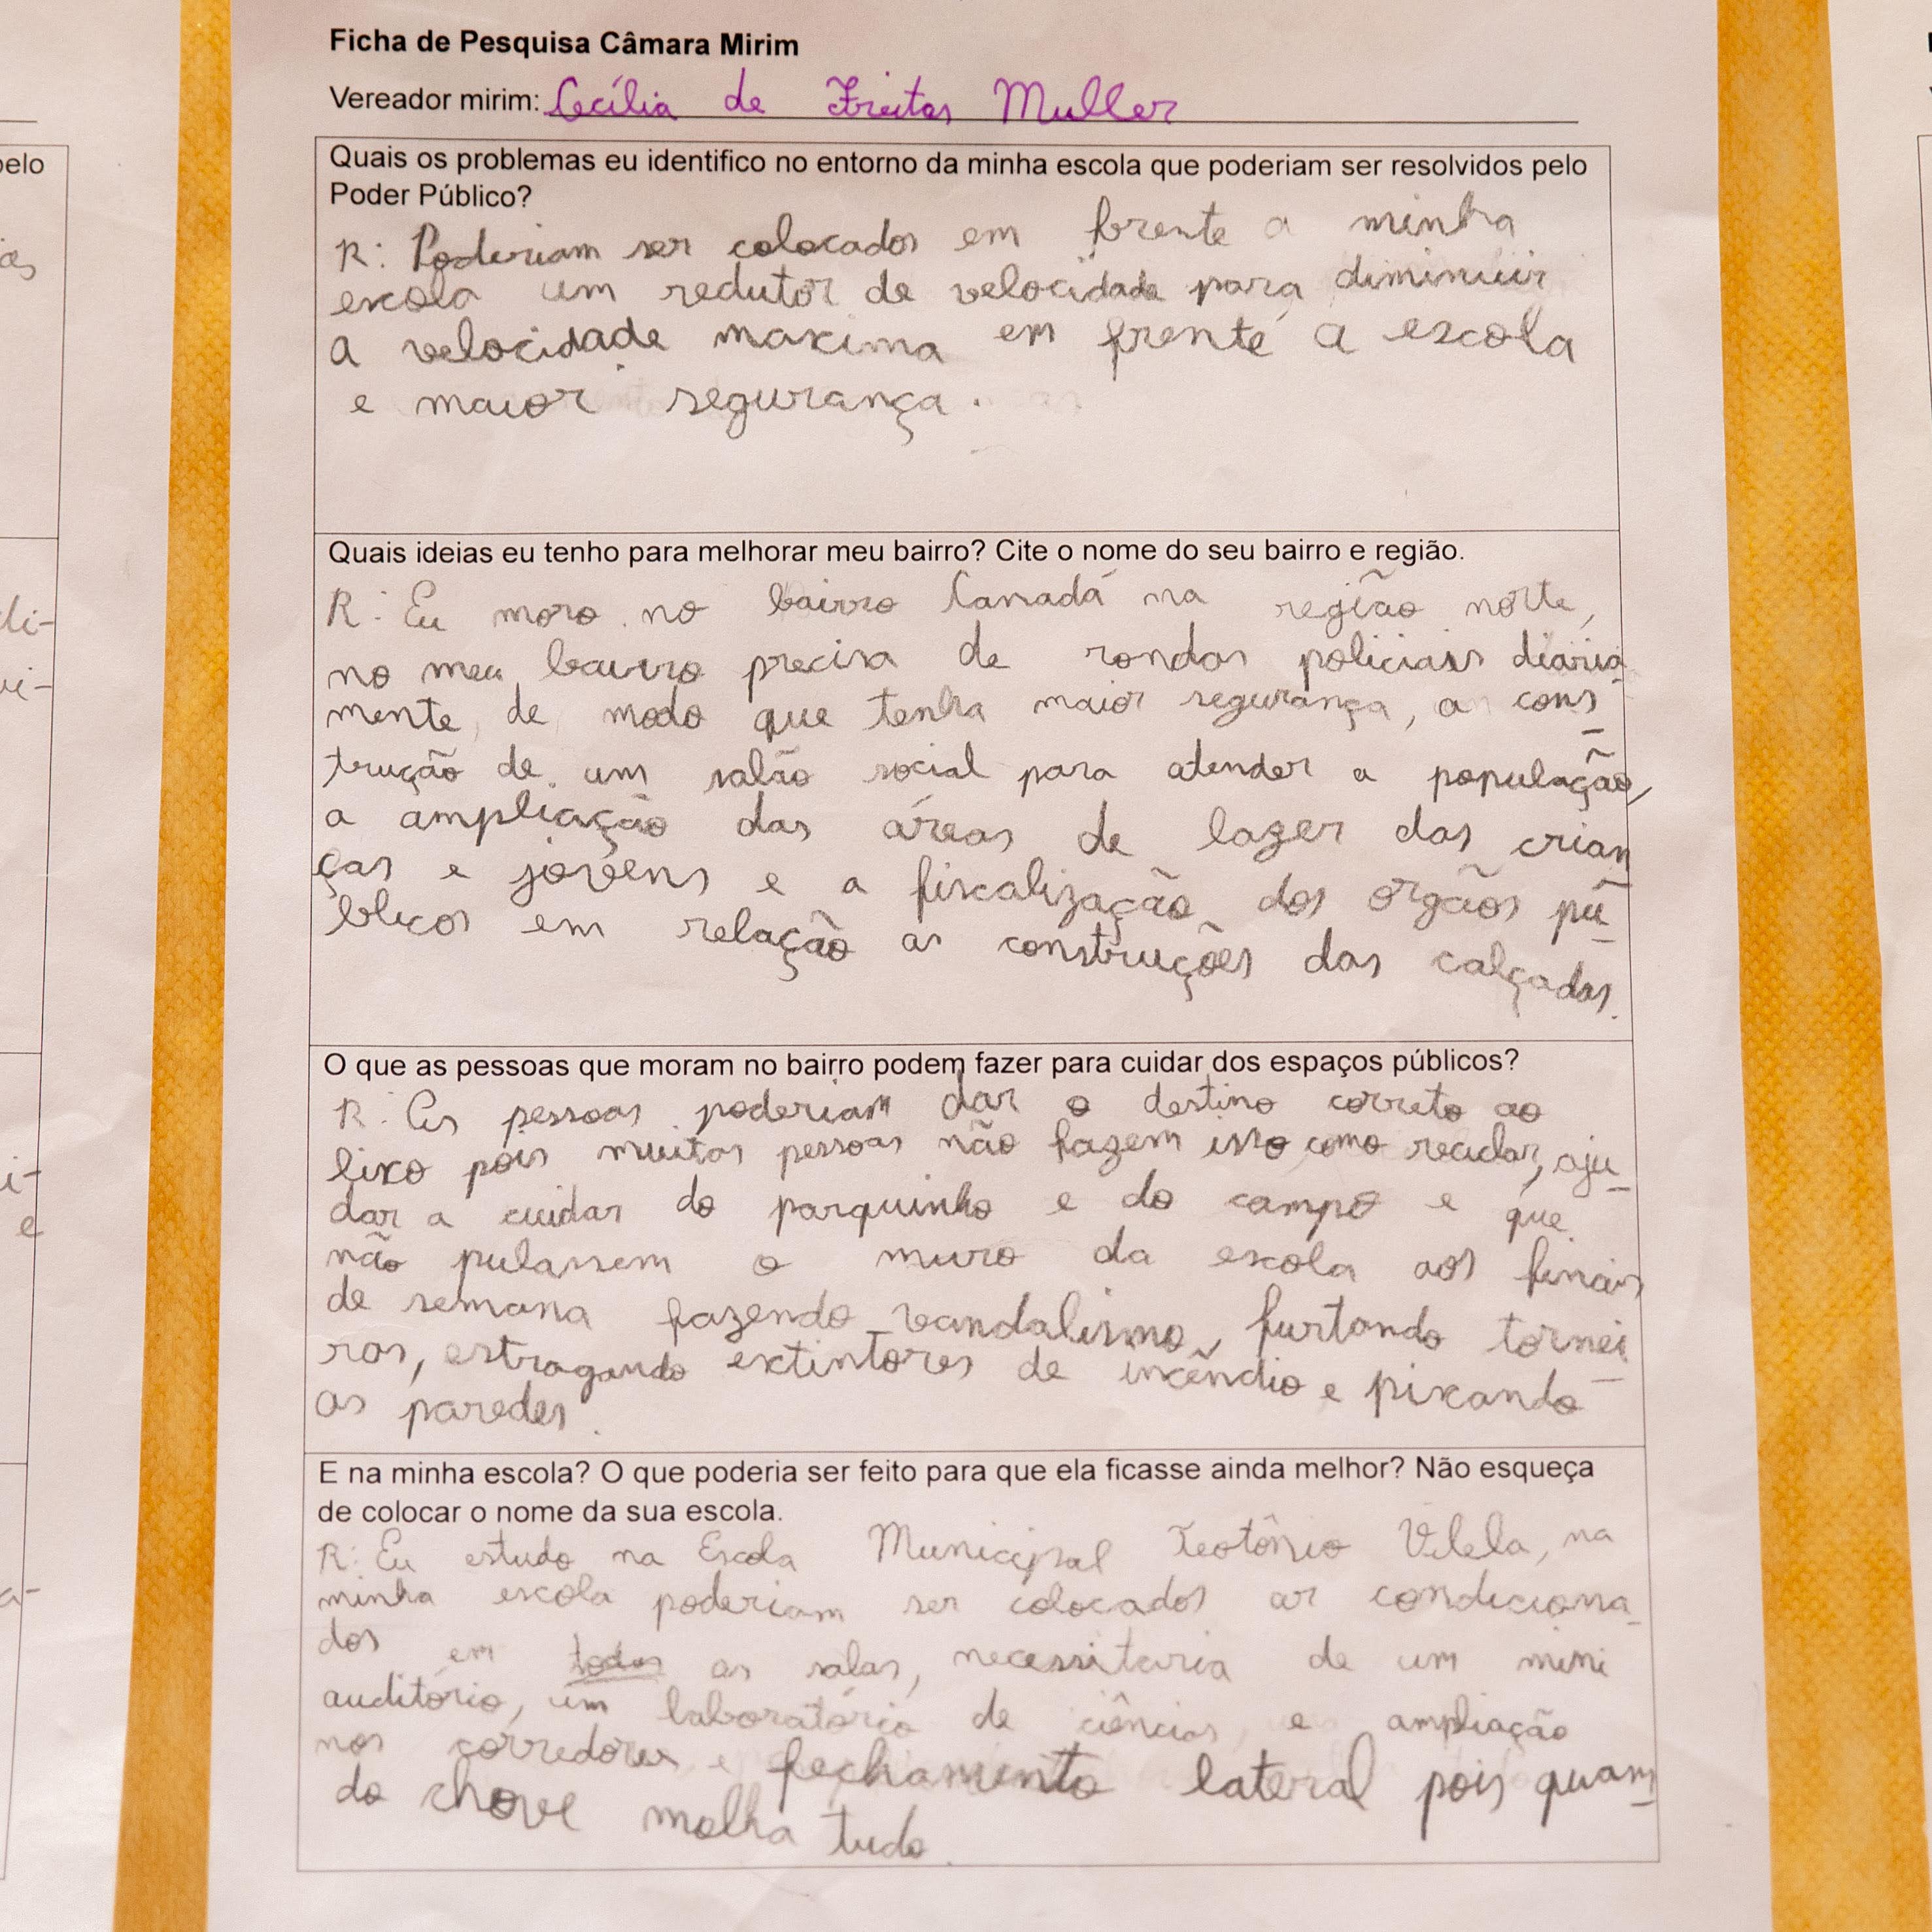 Ficha de Pesquisa Câmara Mirim
Vereador mirim: Cecília de Freitas Muller
Quais os problemas eu identifico no entorno da minha escola que poderiam ser resolvidos pelo
Poder Público?
R: Poderiam ser colocados em frente a minha
escola um redutor de velocidade para diminuir
a velocidade maxima em frente a escola
e maior segurança.
Quais ideias eu tenho para melhorar meu bairro? Cite o nome do seu bairro e região.
R: Eu moro no bairro Canadá na região norte,
no meu bairro precisa de rondas policiais diaria-
mente, de modo que tenha maior segurança, a cons-
trução de um salão social para atender a população,
a ampliação das áreas de lazer das crian
ças e jovens e a fiscalização dos orgãos pú-
blicos em relação as construções das calçadas.
O que as pessoas que moram no bairro podem fazer para cuidar dos espaços públicos?
R: As pessoas poderiam dar o destino correto ao
lixo pois muitas pessoas não fazem isso como reciclar, aju-
dar a cuidar do parquinho e do campo e que
não pulassem o muro da escola aos finais
de semana fazendo vandalismo, furtando tornei-
ras, estragando extintores de incêndio e pixando
as paredes.
E na minha escola? O que poderia ser feito para que ela ficasse ainda melhor? Não esqueça
de colocar o nome da sua escola.
R: Eu estudo na Escola Municipal Teotônio Vilela, na
minha escola poderiam ser colocados ar condiciona-
dos em todas as salas, necessitaria de um mini
auditório, um laboratório de ciências, e ampliação
nos corredores e fechamento lateral pois quan-
do chove molha tudo.